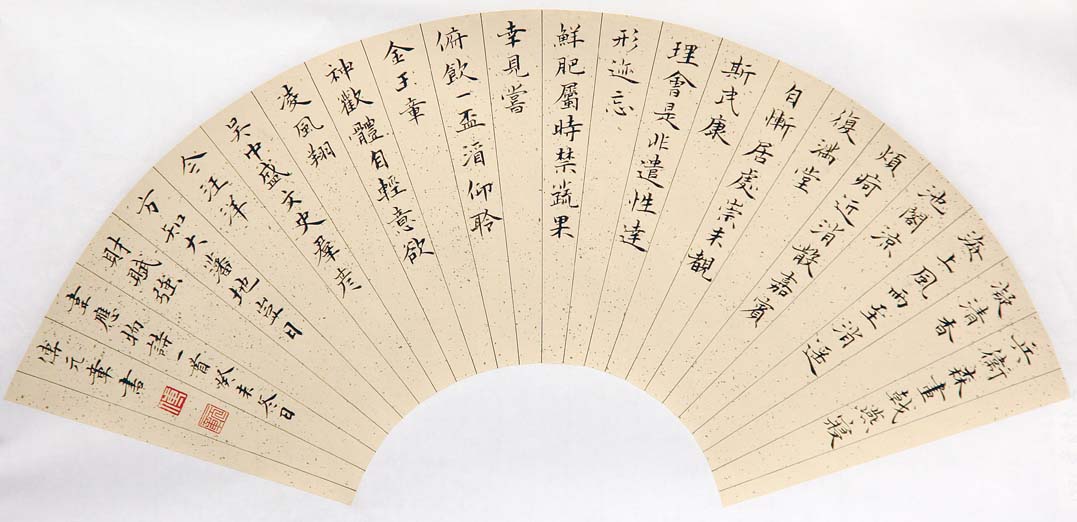 兵衛森畫戟燕寢
凝清香
海上風雨至消遥
池閣凉
煩疴近消散嘉賓
復滿堂
自慚居處崇未覩
斯民康
理會是非遣性達
形迹忘
鮮肥屬時禁蔬果
幸見嘗
俯飲一盃酒仰聆
金玉章
神歡體自輕意欲
凌風翔
吳中盛文史羣彥
今汪洋
方知大藩地豈曰
財賦强
韋應物詩一首癸未冬日
傅元章書